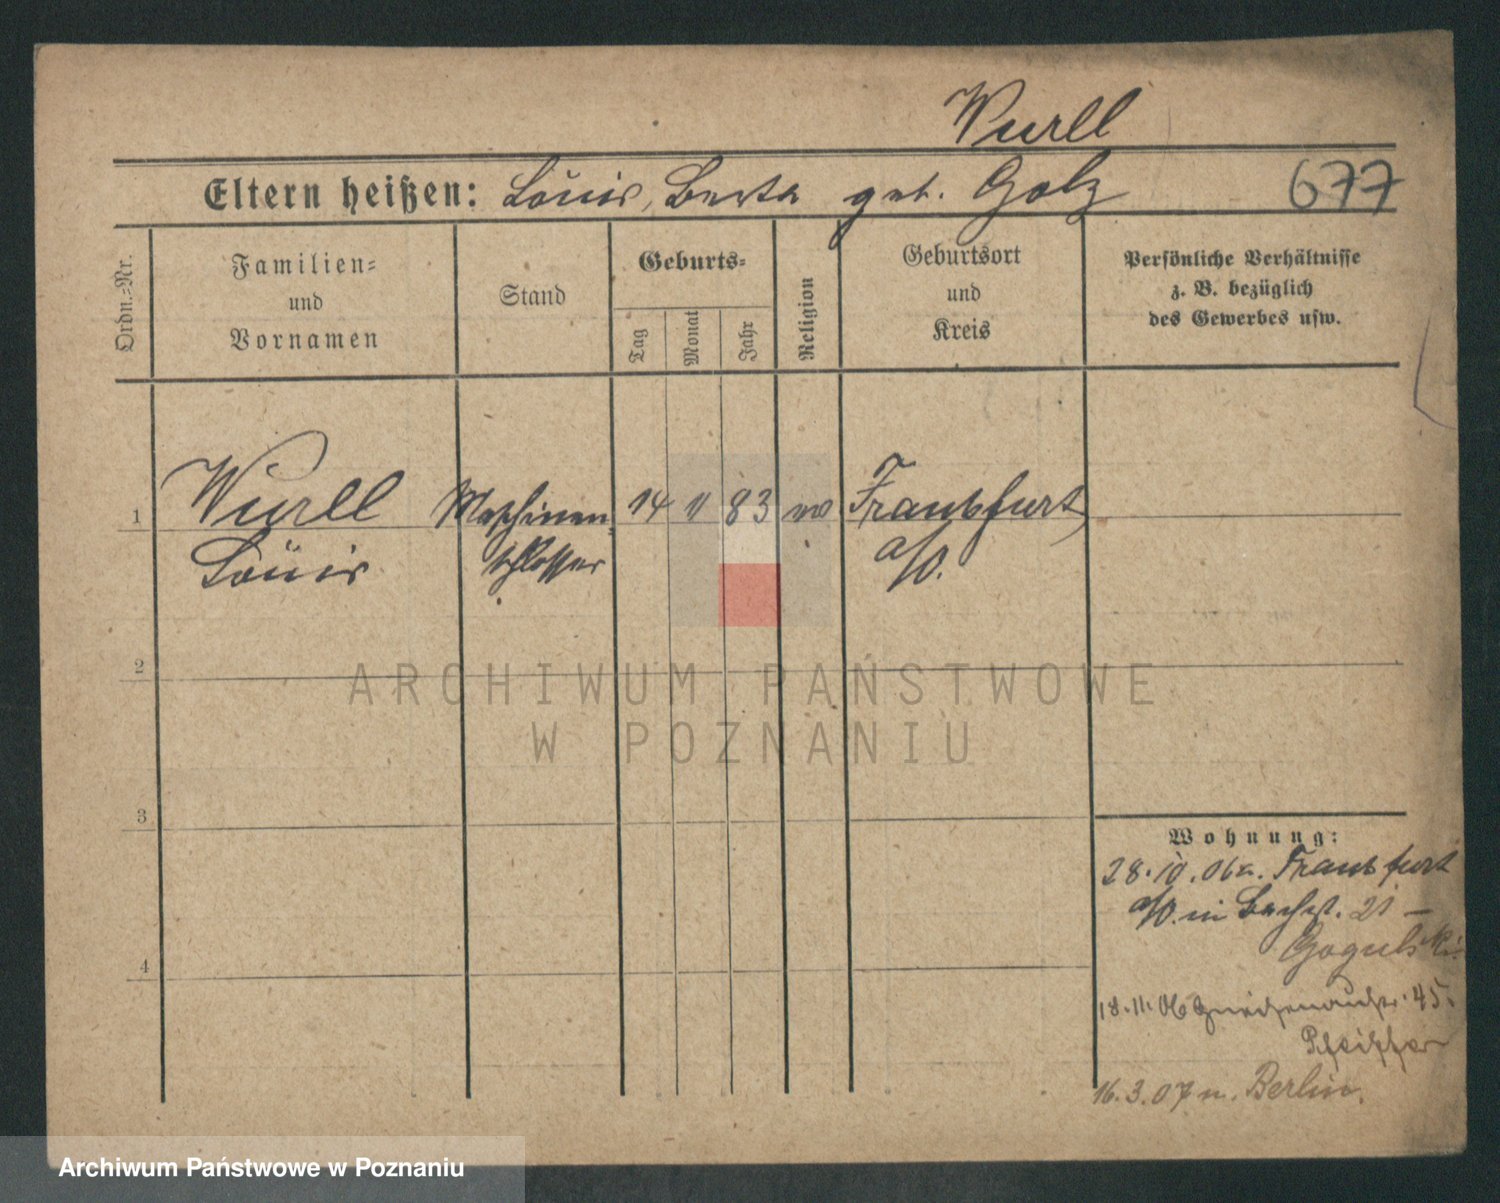 Wurll
Eltern heißen: Louis, Berta geb. Golz 677
Ordn.-Nr.
Familien- und Vornamen
Stand
Geburts-
Tag
Monat
Jahr
Religion
Geburtsort und Kreis
Persönliche Verhältnisse
z. B. bezüglich
des Gewerbes usw.
1 Wurll Maschinen 14 11 83 ev Frankfurt
Louis schlosser a/O.
2
3
4
Wohnung:
28.10.06 a. Frankfurt
a/O. in Bachst. 21 –
Gogulski
18.11.06 45.
Pfeiffer
16.3.07 n. Berlin.
ARCHIWUM PAŃSTWOWE
W POZNANIU
Archiwum Państwowe w Poznaniu